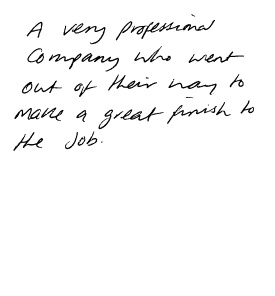 A very professional
Company who went
out of their way to
make a great finish to
the Job.